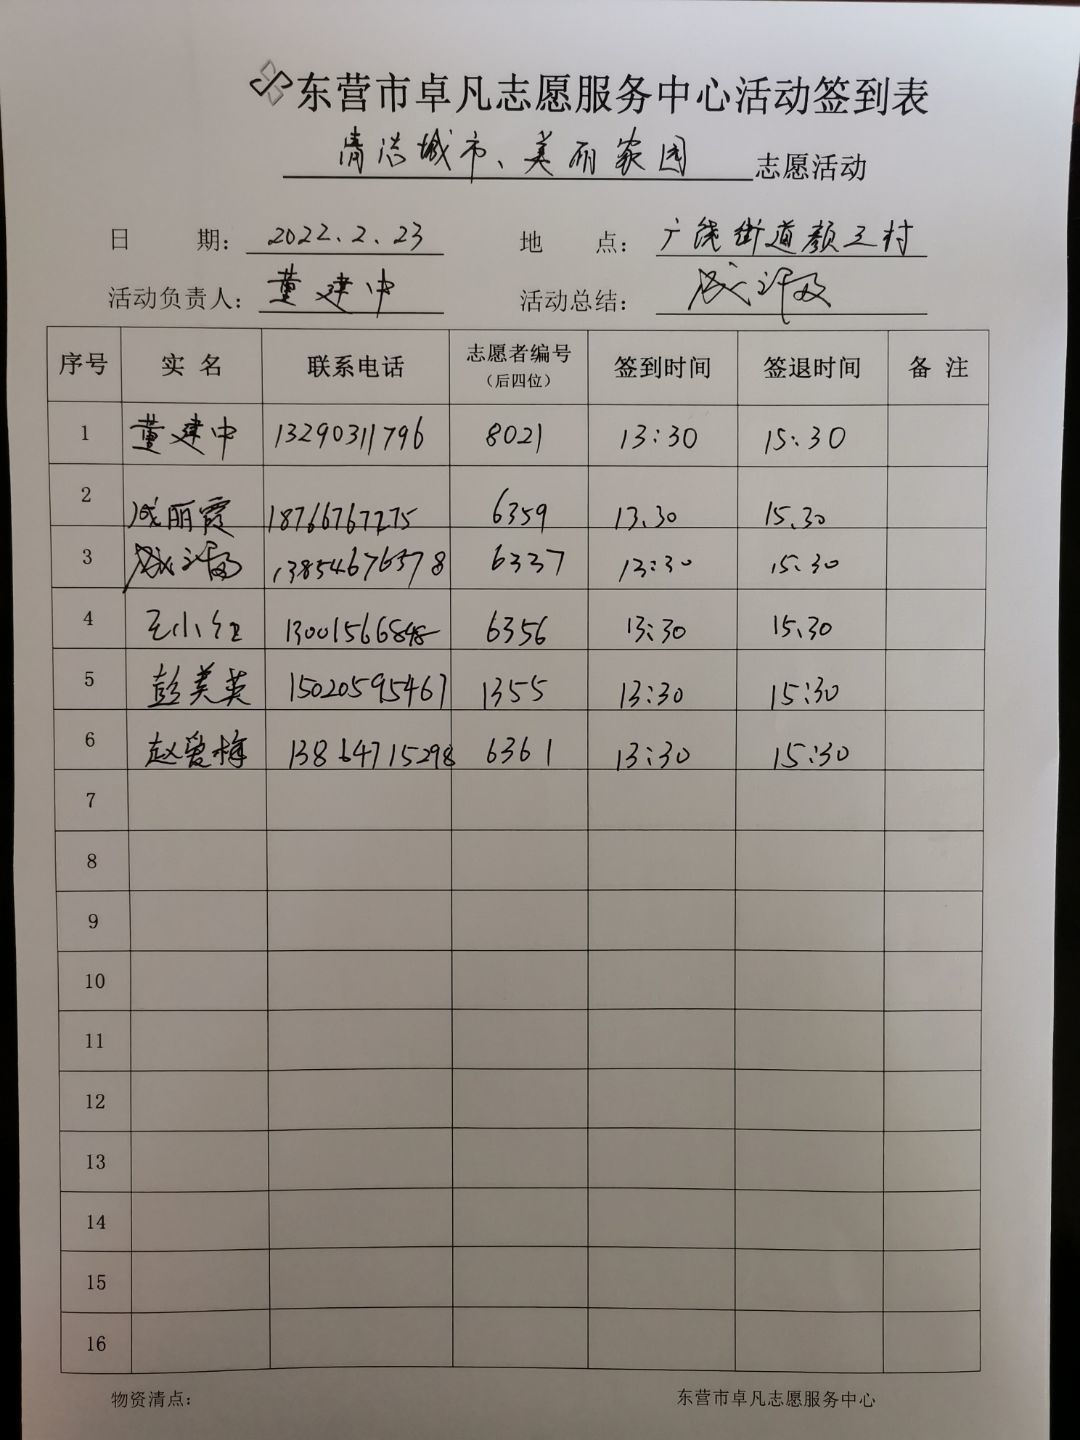 东营市卓凡志愿服务中心活动签到表
清洁城市、美丽家园 志愿活动
日 期: 2022.2.23 地 点: 广饶街道颜王村
活动负责人: 董建中 活动总结:
序号 实名 联系电话 志愿者编号(后四位) 签到时间 签退时间 备注
1 董建中 13290311796 8021 13:30 15:30
2 成丽霞 18766767275 6359 13.30 15.30
3 13854676578 6337 13:30 15:30
4 王小红 13001566848 6356 13:30 15.30
5 彭美英 15020595467 1355 13:30 15:30
6 赵爱梅 13864715298 6361 13:30 15:30
7
8
9
10
11
12
13
14
15
16
物资清点: 东营市卓凡志愿服务中心